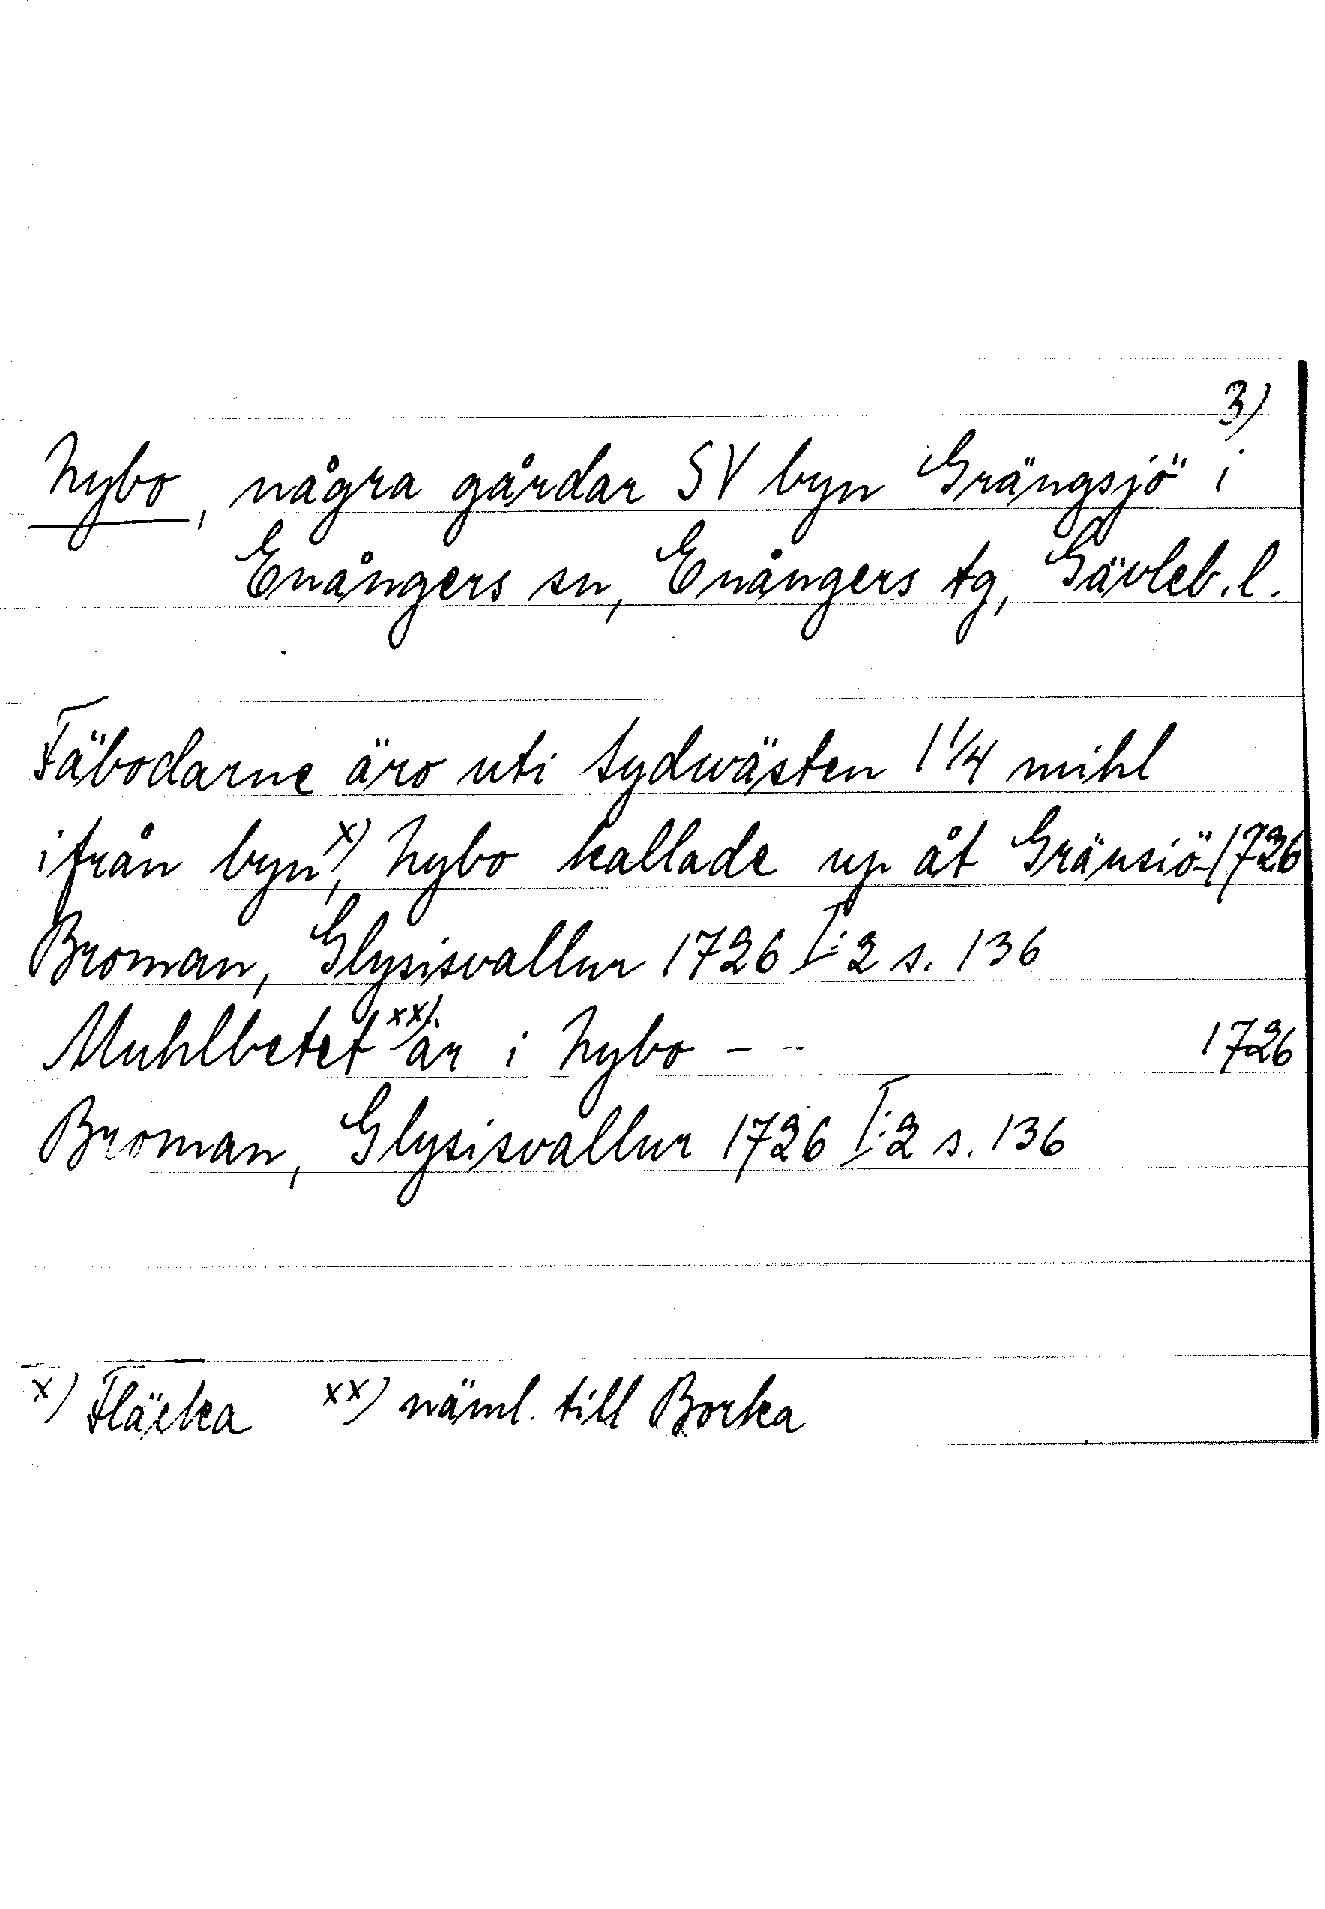 3)
Nybo, några gårdar SV byn Grängsjö i
Enångers sn, Enångers tg, Gävleb. l.
Fäbodarne äro uti Sydwästen 1 1/4 mihl
ifrån byn x), Nybo kallade up åt Gränsiö - 1726
Broman, Glysisvallur 1726 I:2 s. 136
Muhlbetet xx) är i Nybo - - 1726
Broman, Glysisvallur 1726 I:2 s. 136
x) Fläcka xx) näml. till Borka